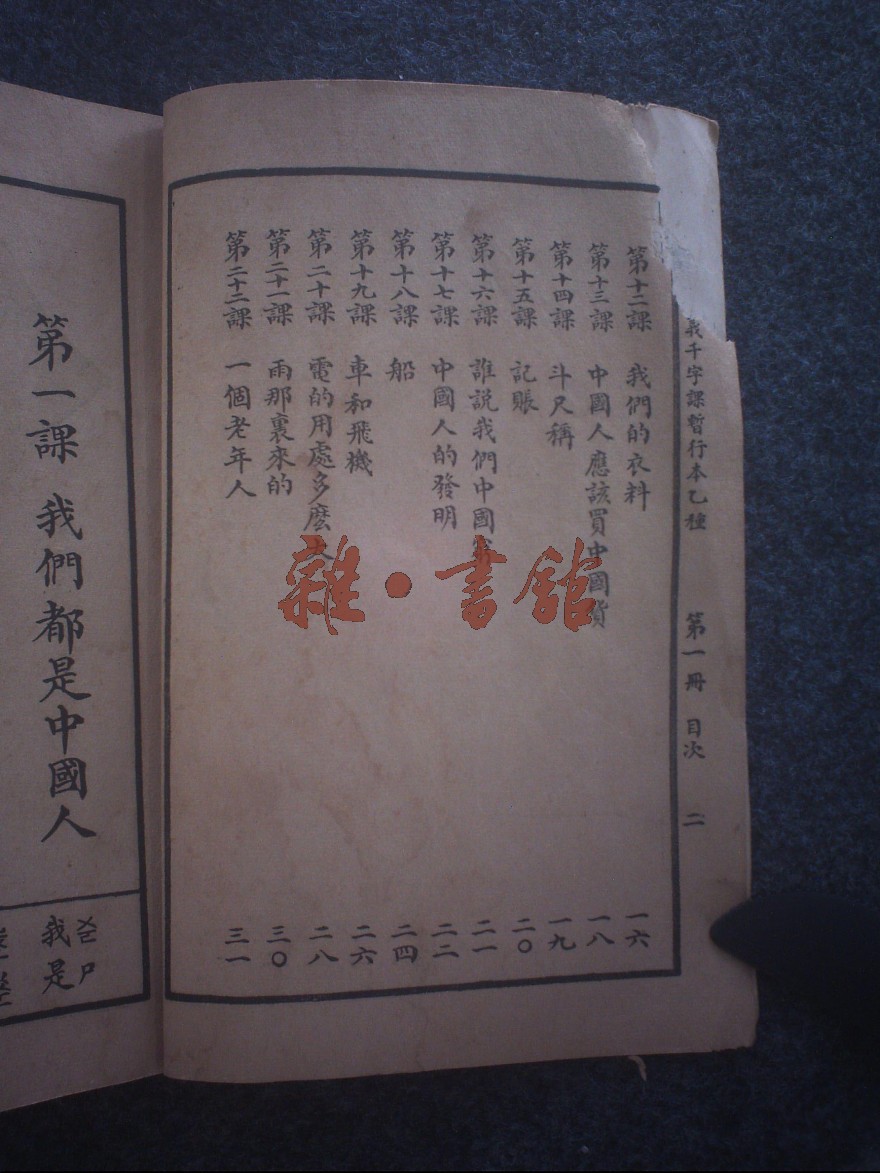 義千字課暫行本乙種 第一冊 目次 二
第十二課 我們的衣料 一六
第十三課 中國人應該買中國貨 一八
第十四課 斗尺稱 一九
第十五課 記賬 二〇
第十六課 誰説我們中國窮 二一
第十七課 中國人的發明 二二
第十八課 船 二四
第十九課 車和飛機 二六
第二十課 電的用處多麼大 二八
第二十一課 雨那裏來的 三〇
第二十二課 一個老年人 三一
雜·書館
第一課 我們都是中國人
我 ㄨㄛ
是 ㄕ